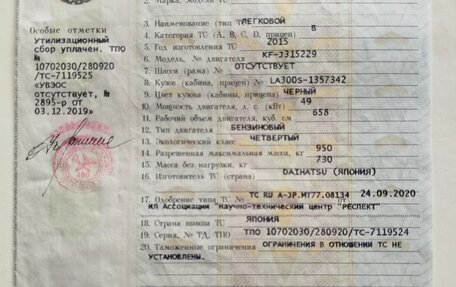 2. Марка, модель ТС
3. Наименование (тип ЛЕГКОВОЙ
4. Категория ТС (A, B, C, D, прицеп) B
5. Год изготовления ТС 2015
6. Модель, № двигателя KF-J315229
7. Шасси (рама) № ОТСУТСТВУЕТ
8. Кузов (кабина, прицеп) № LA300S-1357342
9. Цвет кузова (кабины, прицепа) ЧЕРНЫЙ
10. Мощность двигателя, л. с. (кВт) 49
11. Рабочий объем двигателя, куб. см 658
12. Тип двигателя БЕНЗИНОВЫЙ
13. Экологический класс ЧЕТВЕРТЫЙ
14. Разрешенная максимальная масса, кг 950
15. Масса без нагрузки, кг 730
16. Изготовитель ТС (страна) DAIHATSU (ЯПОНИЯ)
17. Одобрение типа ТС № ТС RU A-JP.МТ77.08134 24.09.2020
ИЛ Ассоциации "Научно-технический центр "РЕСПЕКТ"
18. Страна вывоза ТС ЯПОНИЯ
19. Серия, № ТД, ТПО ТПО 10702030/280920/ТС-7119524
20. Таможенные ограничения ОГРАНИЧЕНИЯ В ОТНОШЕНИИ ТС НЕ
УСТАНОВЛЕНЫ.
Особые отметки
Утилизационный
сбор уплачен. ТПО
№
10702030/280920
/ТС-7119525
«УВЭОС
отсутствует, №
2895-р от
03.12.2019»